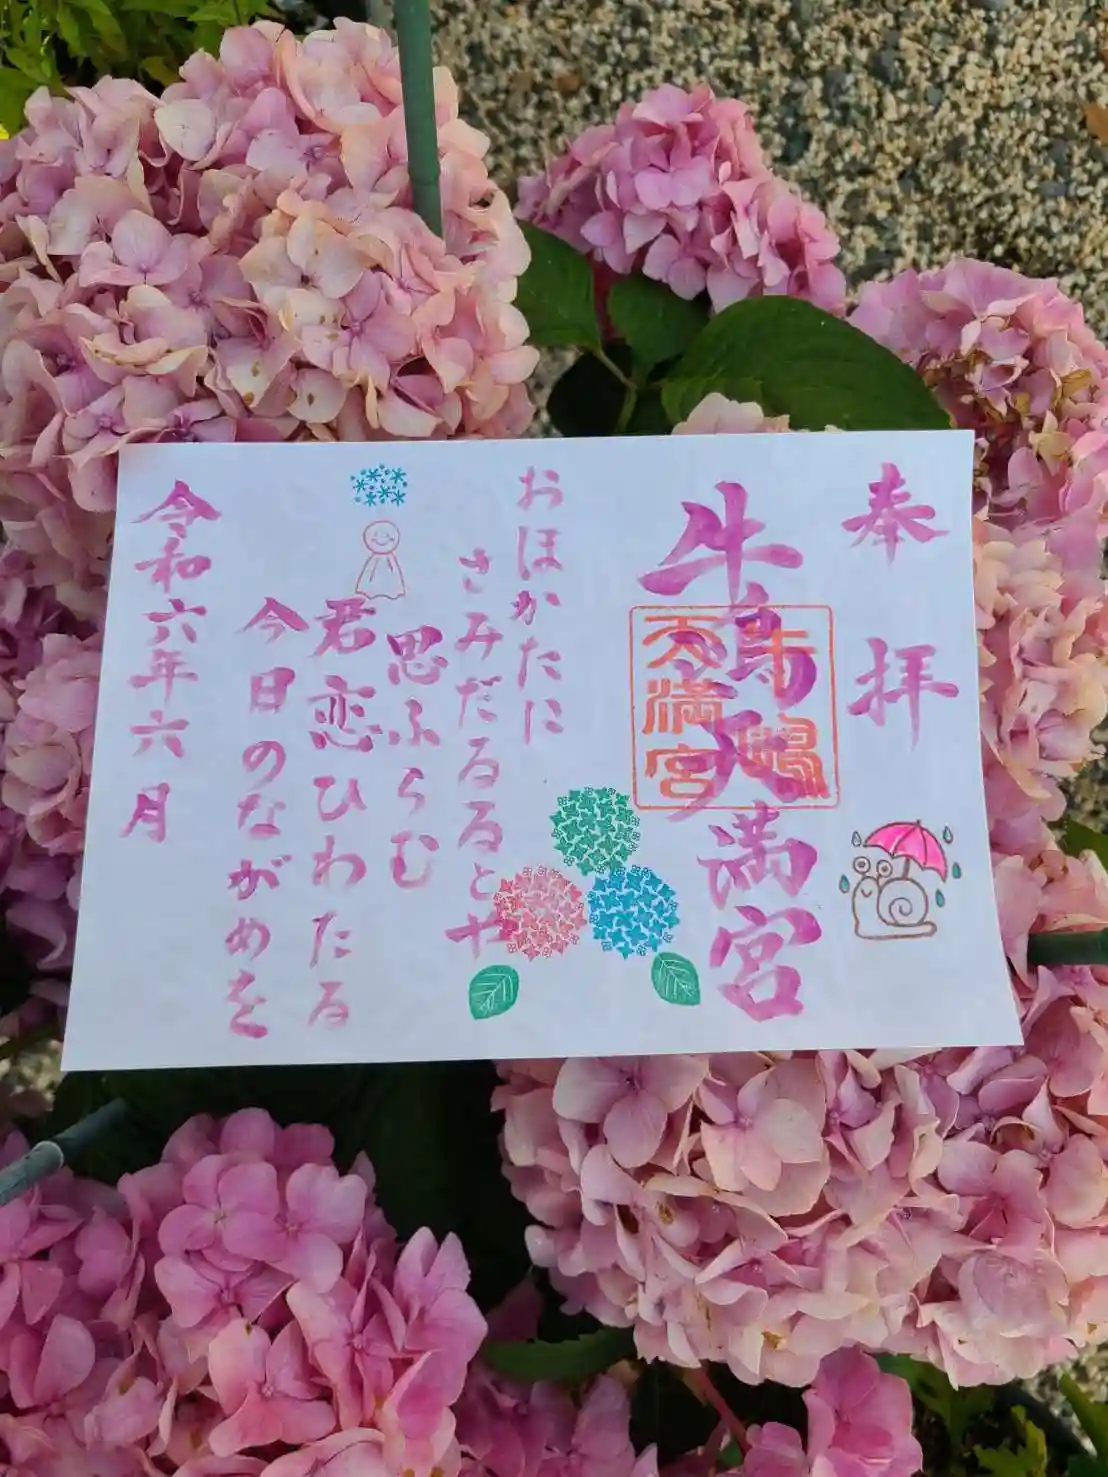 奉拝
牛嶋天満宮
牛嶋
天満宮
おほかたに
さみだるるとや
思ふらむ
君恋ひわたる
今日のながめを
令和六年六月